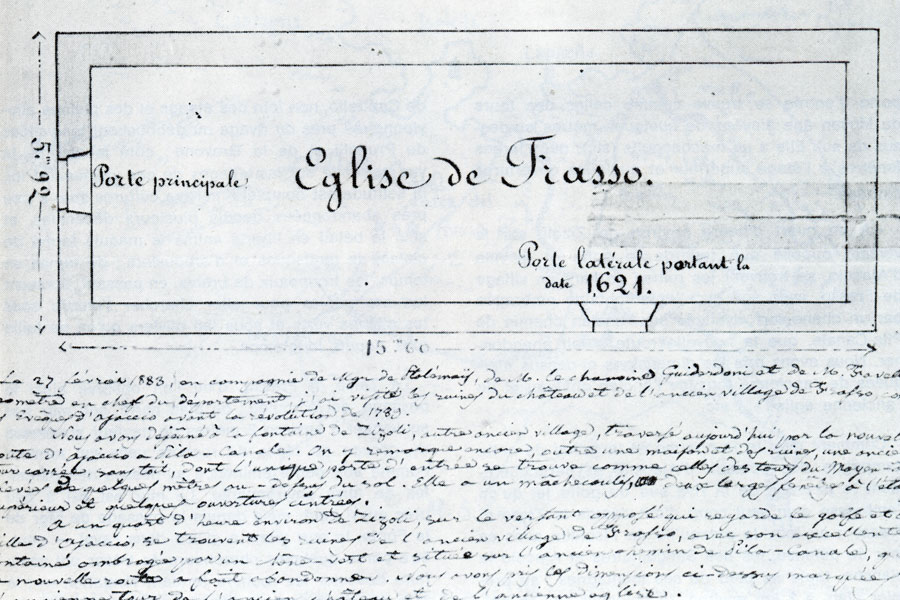 5.m 60
Porte principale,
Eglise de Frasso.
Porte latérale portant la
date 1621.
15.60
Le 27 février 1883, en compagnie de Mgr de Ptolémaïs, de M. le chanoine Guidardoni et de M.
en chef du département, j'ai visité les ruines du château et de l'ancien village de Frasso
d'Ajaccio avant la révolution de 1789.
Nous avons déjeuné à la fontaine de Zizoli, autre ancien village, traversé aujourd'hui par la nouvelle
route d'Ajaccio à Pila-Canale. On y remarque encore, outre une maison et des ruines, une ancienne
tour carrée, sans toit, dont l'unique porte d'entrée se trouve comme celles des tours du Moyen
de quelques mètres au-dessus du sol. Elle a un mâchecoulis, deux larges
et quelques ouvertures cintrées.
A un quart d'heure environ de Zizoli, sur le versant opposé qui regarde le golfe et
ville d'Ajaccio, se trouvent les ruines de l'ancien village de Frasso, avec son excellente
fontaine ombragée par un chêne-vert et située sur l'ancien chemin de Pila-Canale, que
la nouvelle route a fait abandonner. Nous avons pris les dimensions ci-dessus marquées
l'ancienne tour de l'ancien château et de l'ancienne église.